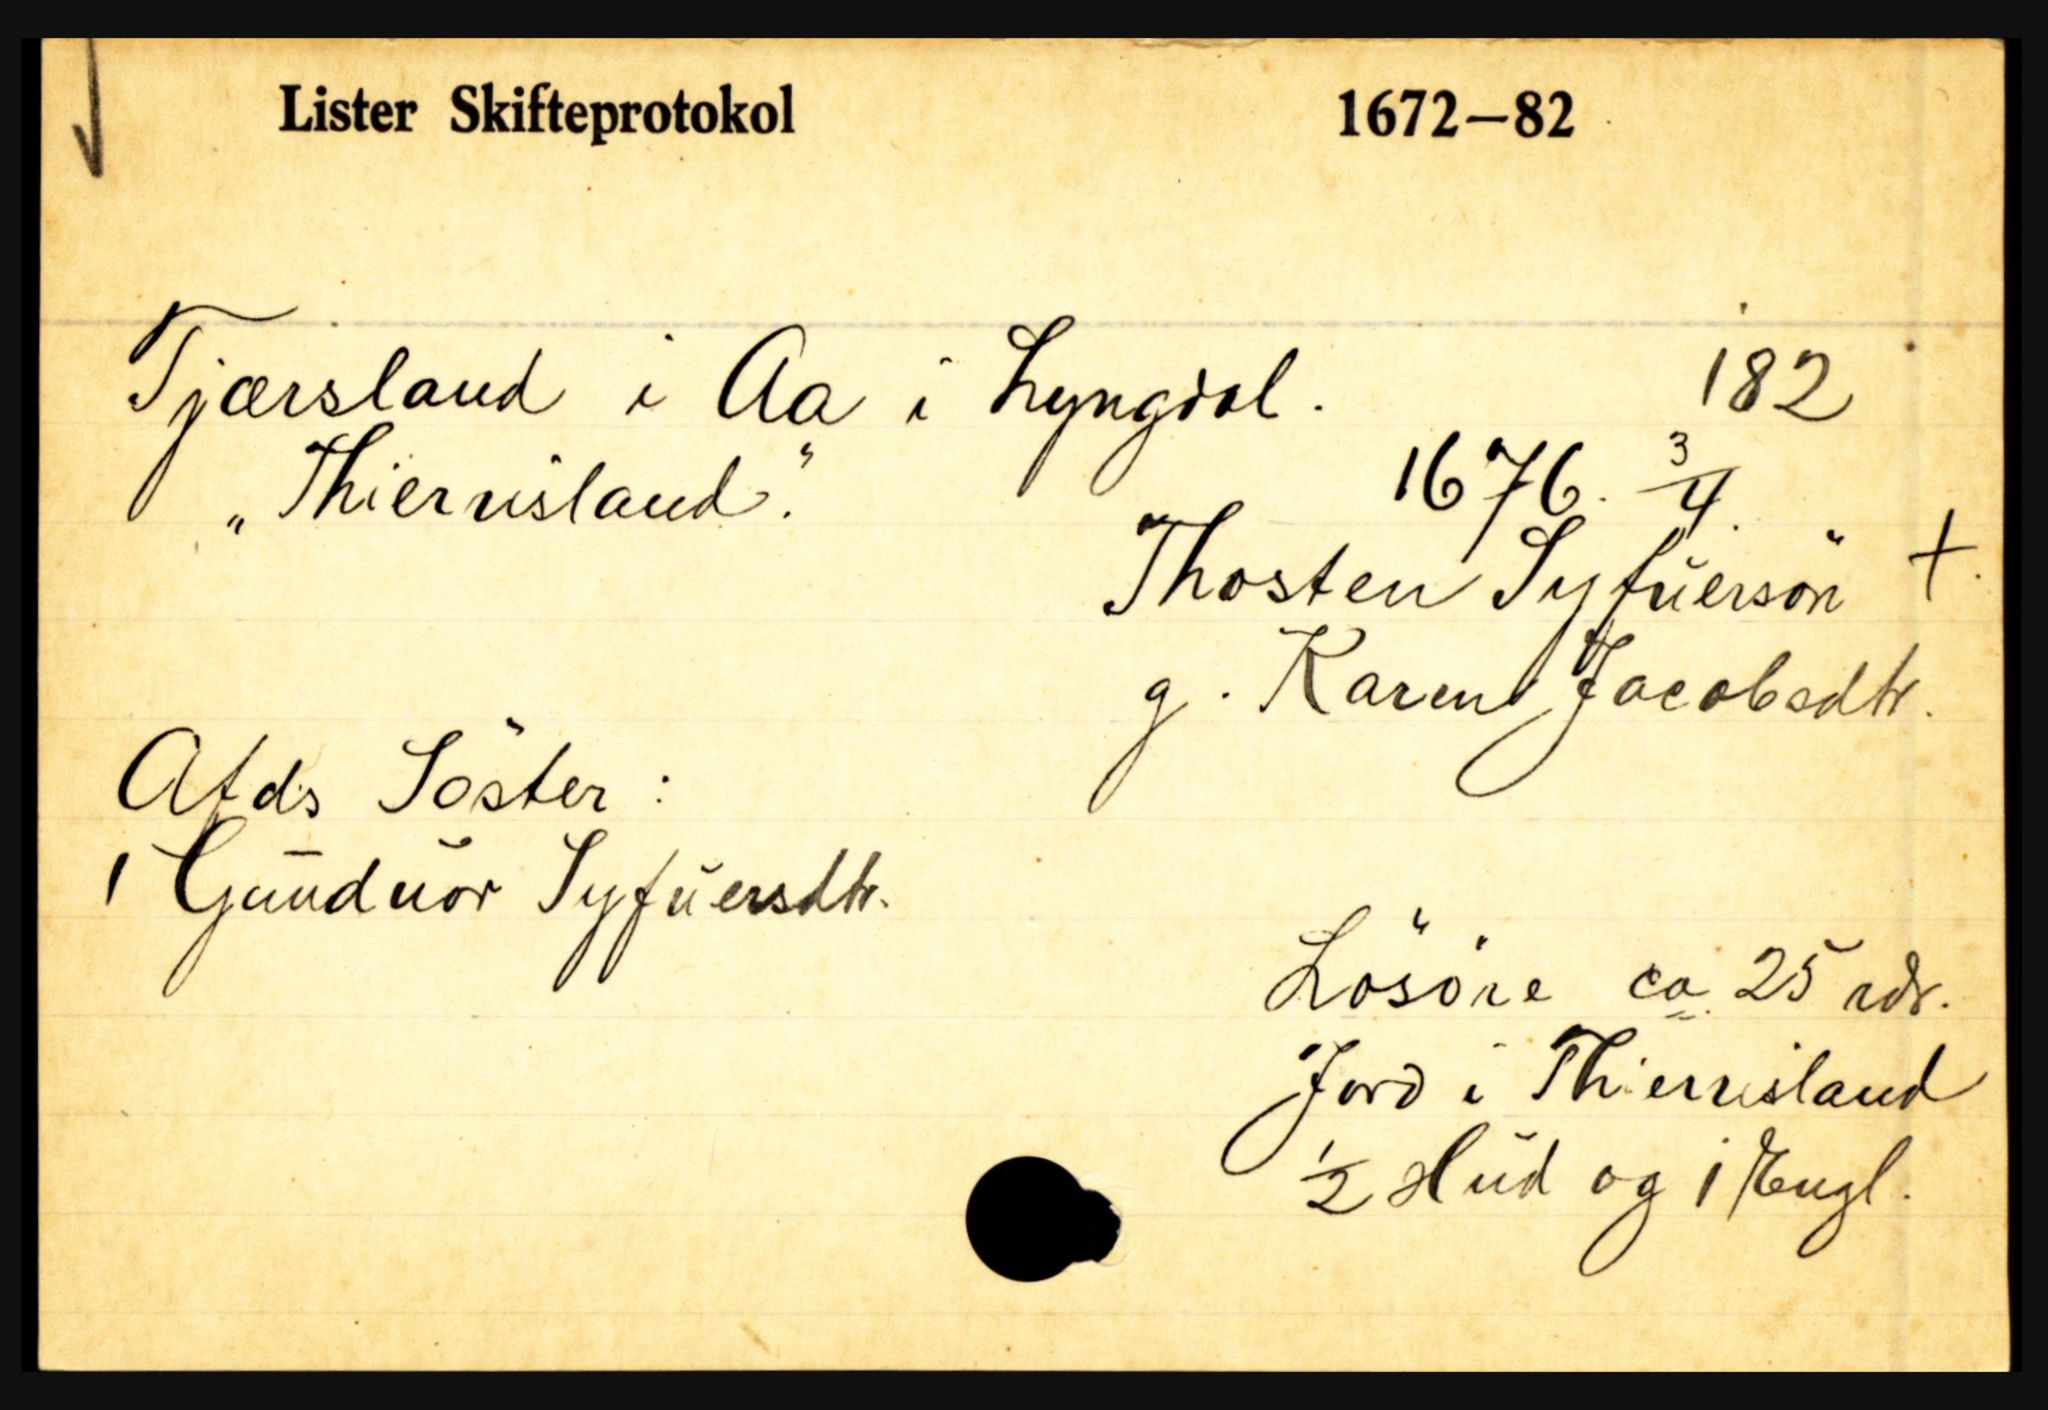 Lister Skifteprotokol 1672–82
Tjærsland i Aa i Lyngdal. 182
„Thierrisland." 1676. 3/4.
Thosten Syfuersön +.
g. Karen Jacobsdtr.
Afds Söster:
1 Gunduor Syfuersdtr.
Lösöre ca. 25 rdr.
Jord i Thierrisland
1/2 Hud og 1 Engl.